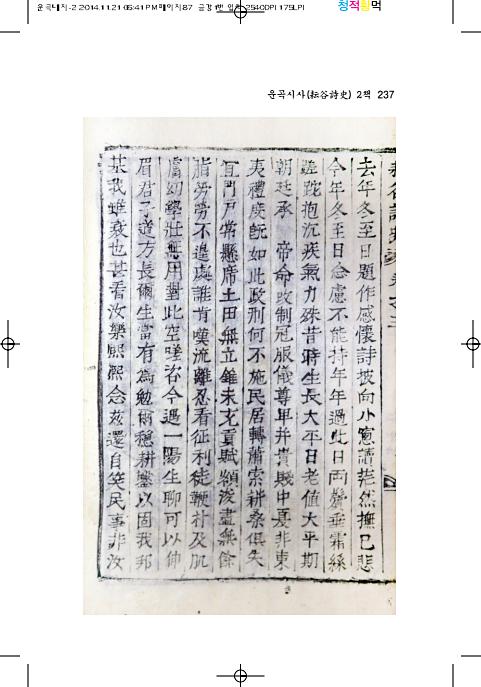 운곡대지-2 2014.11.21 05:41 PM 페이지 87
2540DPI 175LPI
청적황먹
운곡시사(耘谷詩史) 2책 237
去年冬至日題作感懷詩披向小窓讀茫然撫已悲
今年冬至日念慮不能持年年過此日兩鬢垂霜絲
蹉跎抱沉疾氣力殊昔時生長大平日老値大平期
朝廷承 帝命改制冠服儀尊卑幷貴賤中夏非東
夷禮度旣如此政刑何不施民居轉蕭索耕桑俱失
宜門戶常懸席土田無立錐未充夏賦頻浚盡無餘
脂勞勞不遑處誰肯嘆流離忍看征利徒鞭朴及肌
膚幼學壯無用對此空嗟咨今遇一陽生聊可以伸
眉君子道方長爾生當有爲勉稱穩耕鑿以固我邦
基我雖衰也甚看汝樂熙熙念玆還自笑民事非汝